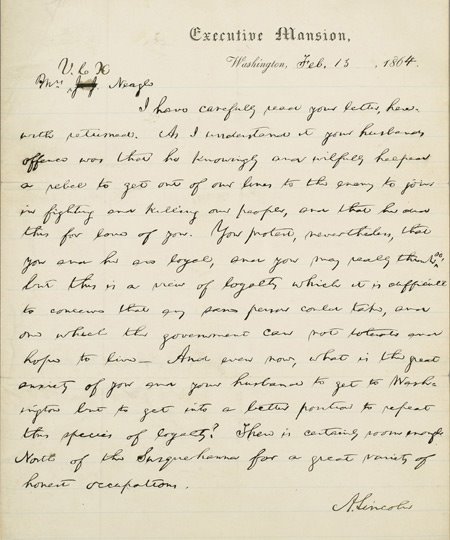 Executive Mansion,
Washington, Feb. 13, 1864.
V. C. K
Mrs. Neagle
I have carefully read your letter, here-
with returned. As I understand it your husbands
offence was that he knowingly and wilfully helped
a rebel to get out of our lines to the enemy to join
in fighting and killing our people, and that he did
this for love of you. You protest, nevertheless, that
you and he are loyal, and you may really think so,
but this is a view of loyalty which it is difficult
to conceive that any sane person could take, and
one which the government can not tolerate and
hope to live— And even now, what is the great
anxiety of you and your husband to get to Wash-
ington but to get into a better position to repeat
this species of loyalty? There is certainly room enough
North of the Susquehanna for a great variety of
honest occupations.
A. Lincoln